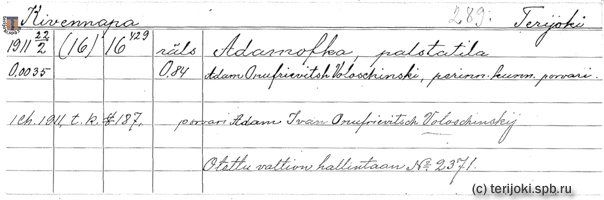 Kivennapa 289. Terijoki
1911 22/2 (16) 16 429 räls Adamofka palstatila
0,0035 0,84 Adam Onufrievitsh Voloschinski, perinn. kunn. porvari.
1 ch. 1911, t. k. # 187. porvari Adam Ivan Onufrievitsch Voloschinskij
Otettu valtion hallintaan № 2371.
(c) terijoki.spb.ru